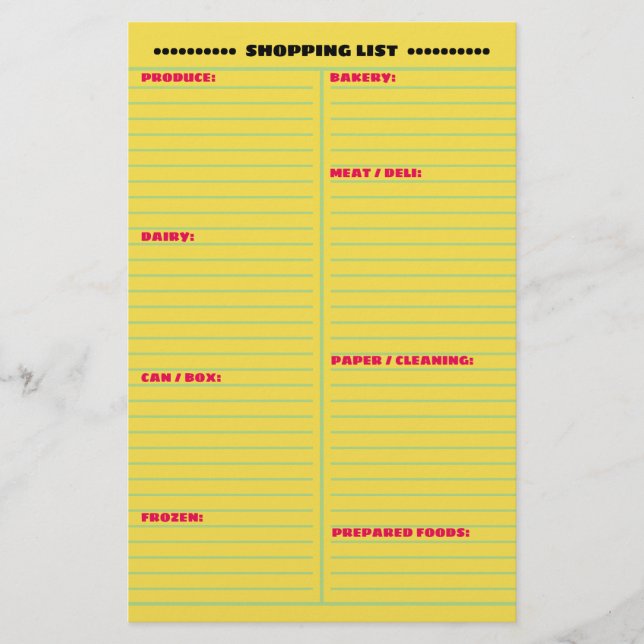 •••••••••• SHOPPING LIST ••••••••••
PRODUCE:
DAIRY:
CAN / BOX:
FROZEN:
BAKERY:
MEAT / DELI:
PAPER / CLEANING:
PREPARED FOODS: